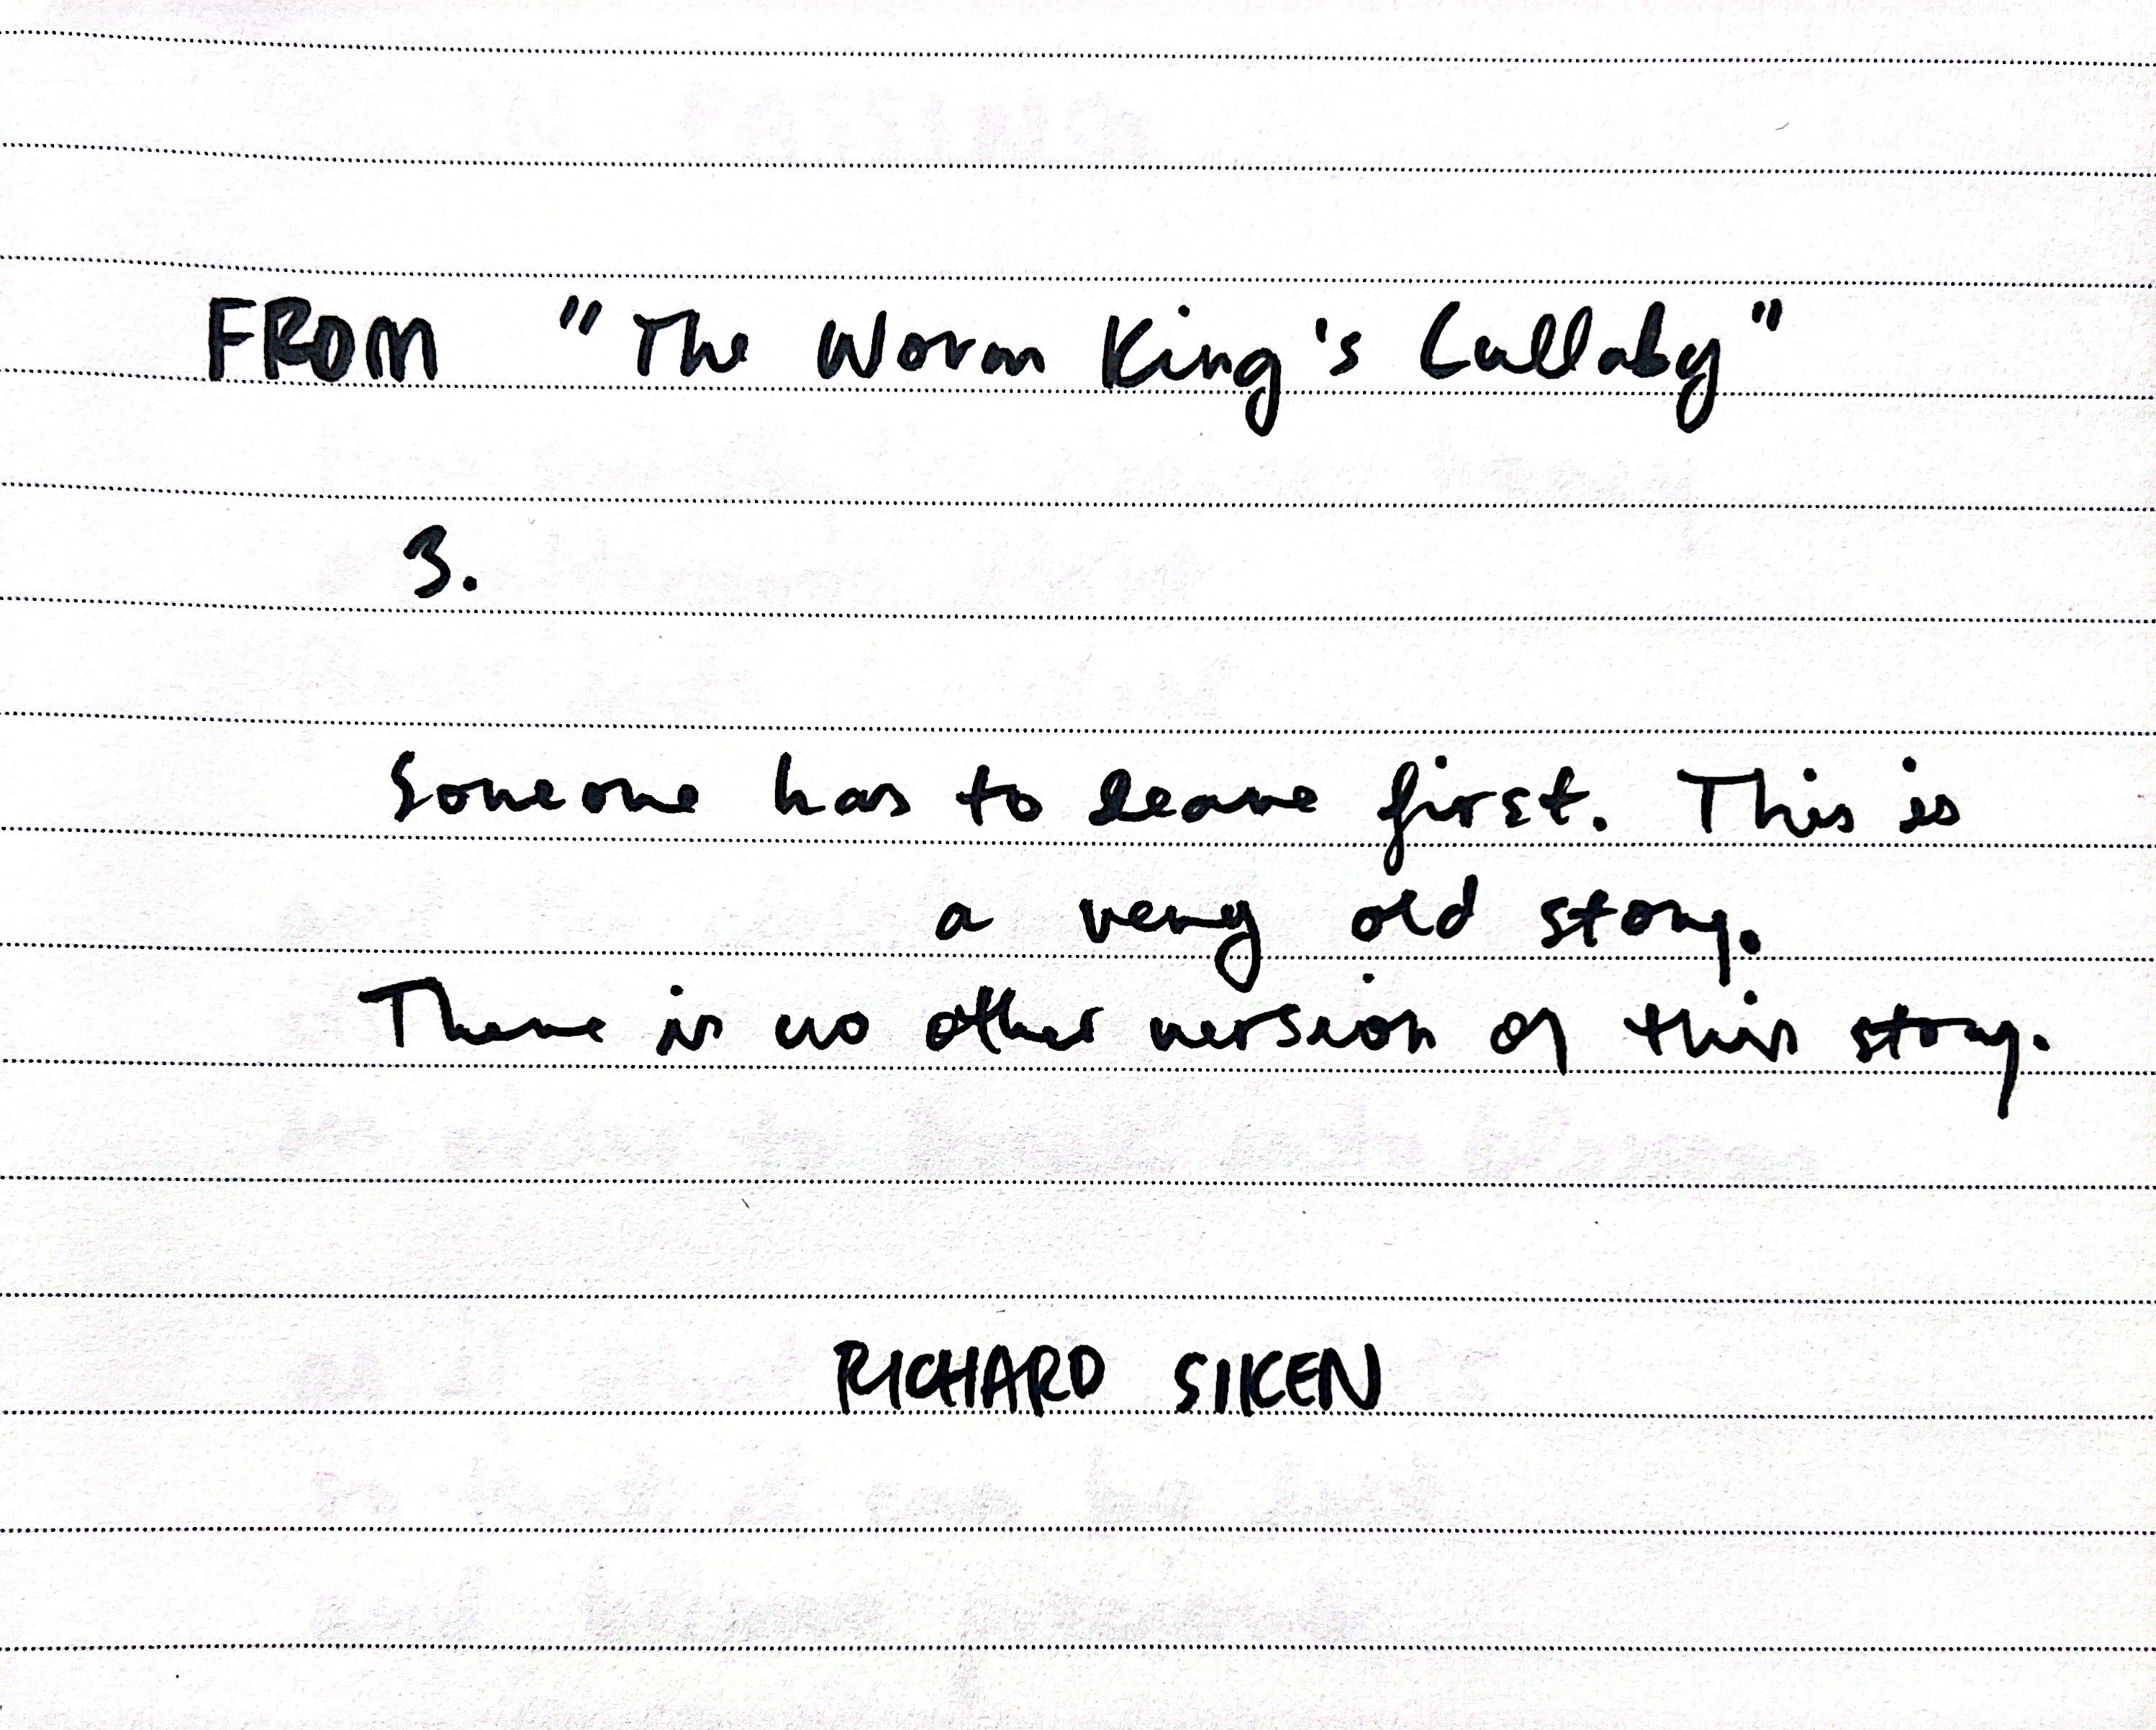 FROM "The Worm King's Lullaby"
3.
Someone has to leave first. This is
a very old story.
There is no other version of this story.
RICHARD SIKEN